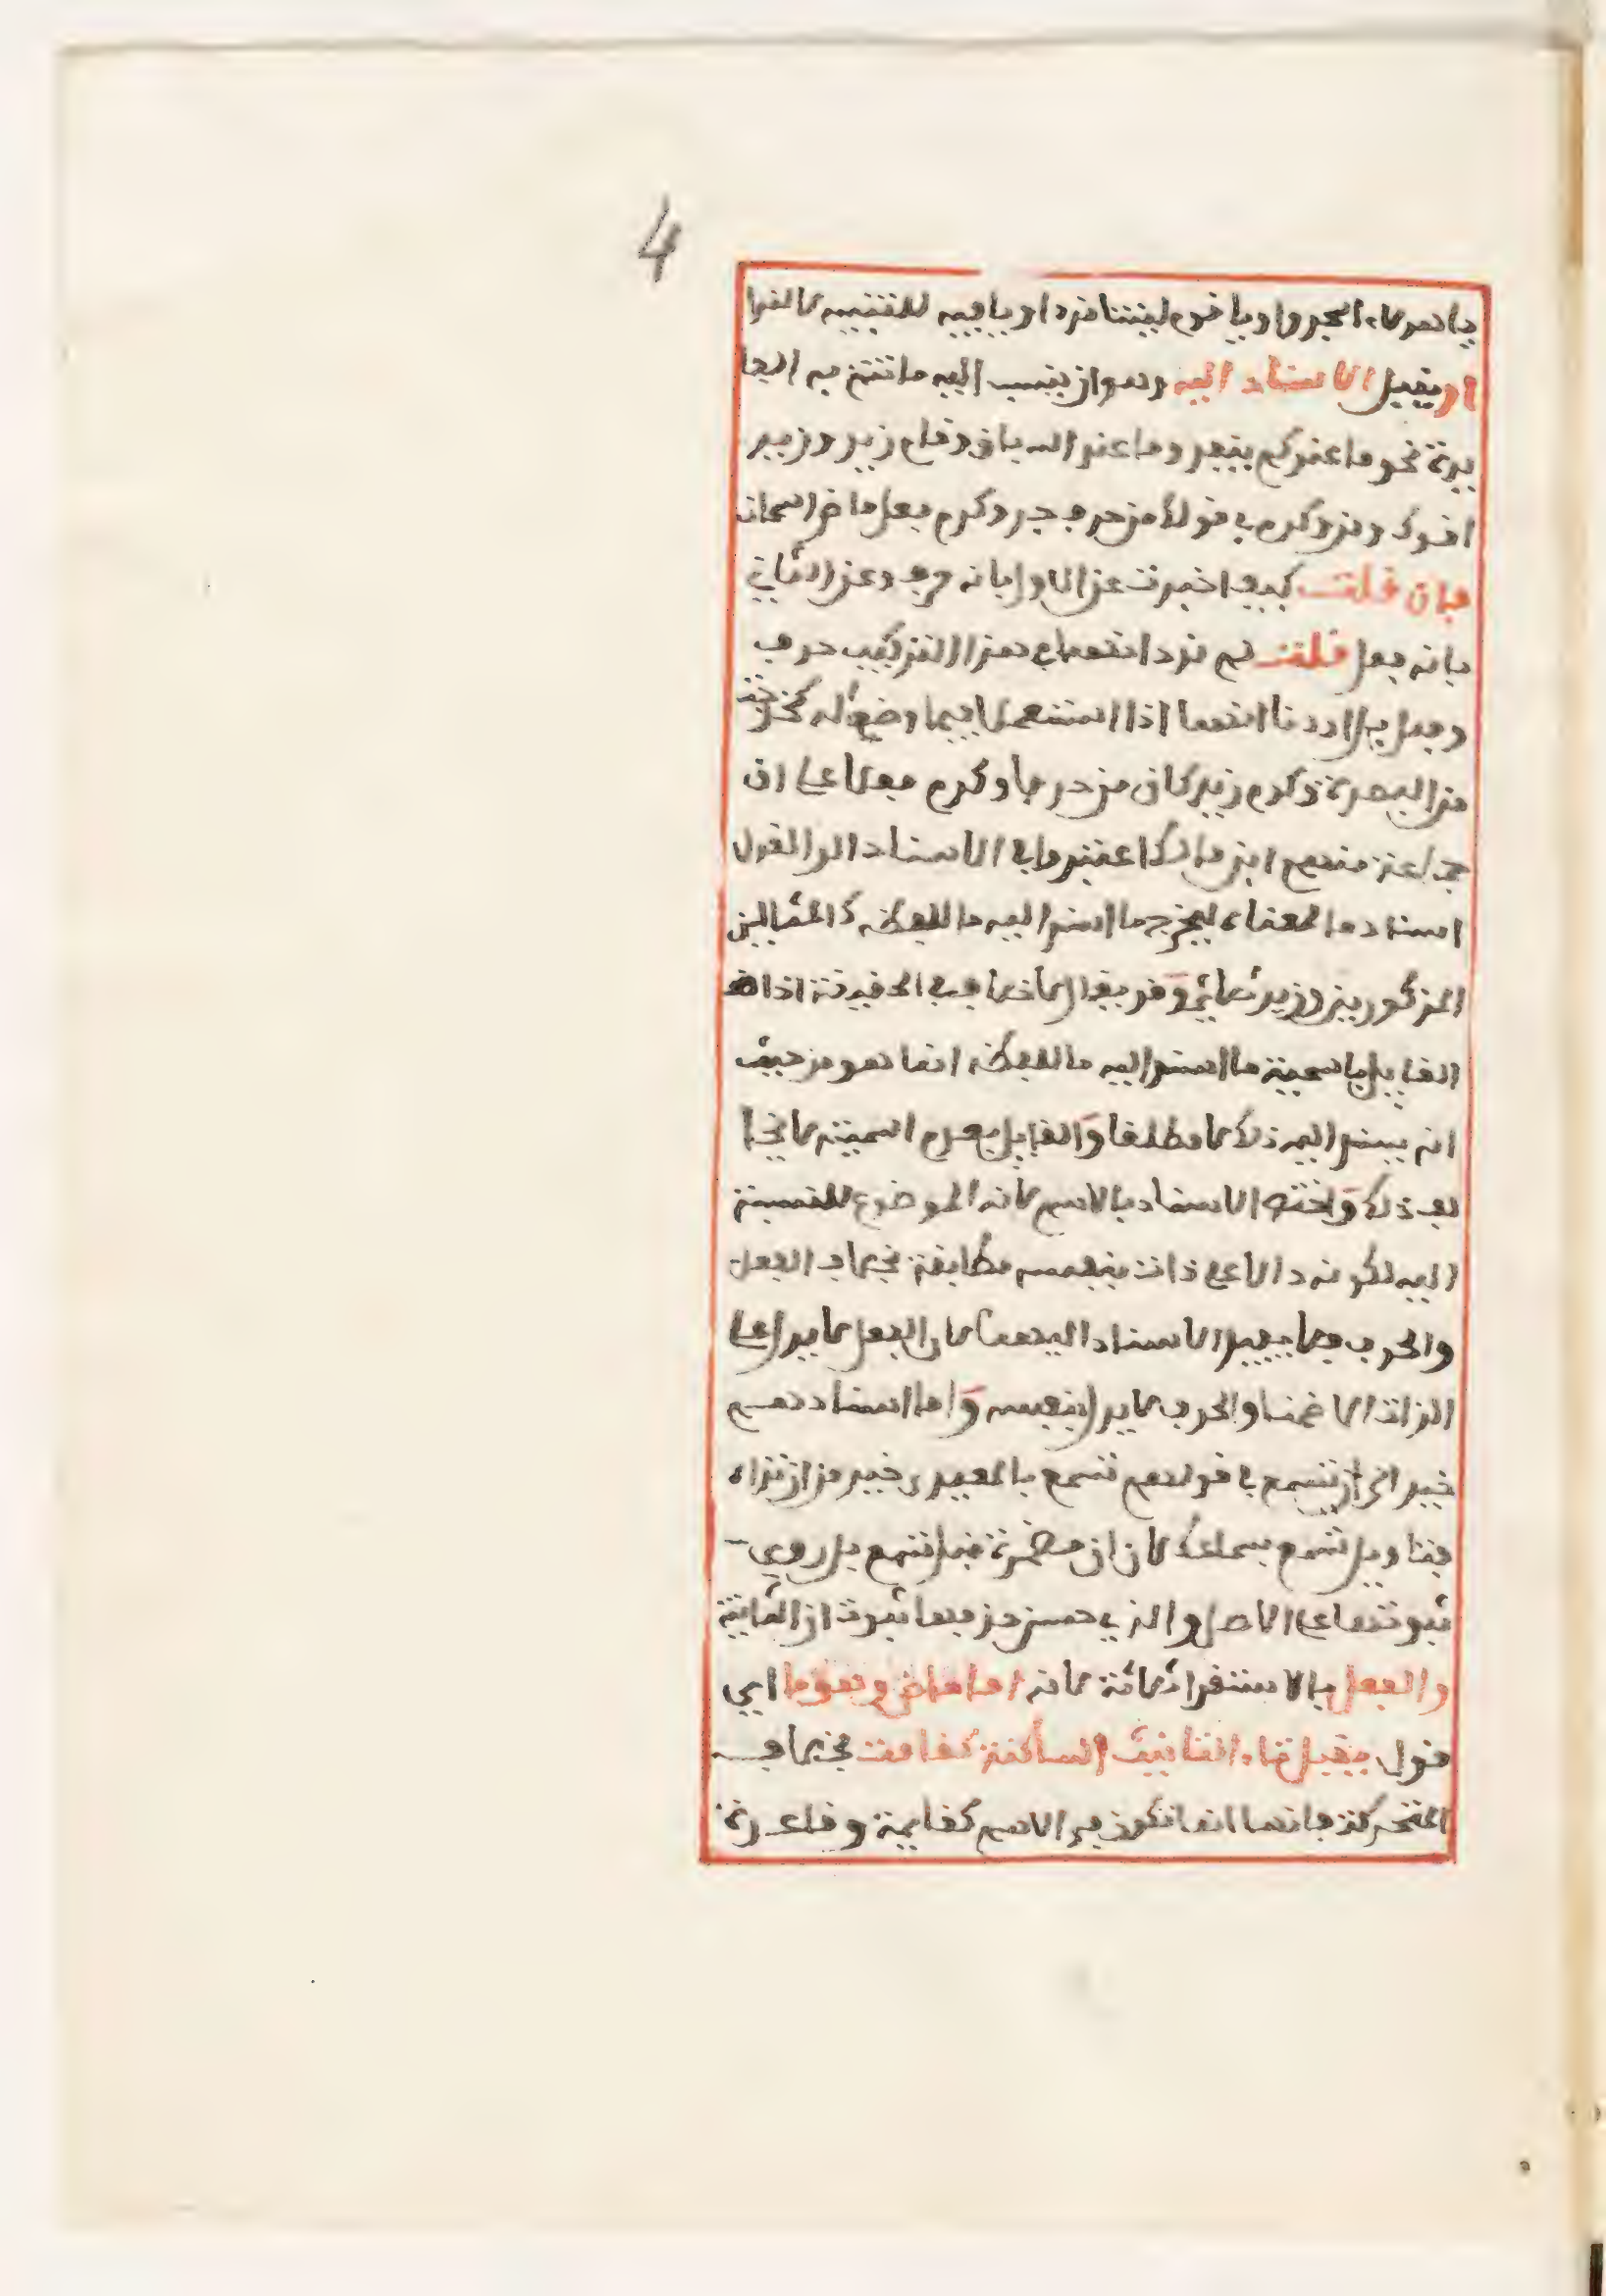 4
يا هولاء اسجدوا ويا قوم ليتنا نرد او يا فيه للتنبيه لا للندا
او يقبل الاسناد اليه وهو ان ينسب اليه ما تتم به الفا
يدة نحو ما عندكم ينفد وما عند الله باق وقام زيد وزيد
اخوك ومن وكرم في قولك من حرف جر وكرم فعل ماض اسمان
فان قلت كيف اخبرت عن الاول بانه حرف وعن الثاني
بانه فعل قلت لم نرد انهما في هذا التركيب حرف
وفعل بل اردنا انهما اذا استعملا فيما وضع له كخرجت
من البصرة وكرم زيد كان من حرفا وكرم فعلا على ان
جماعة منهم ابن مالك اعتبروا في الاسناد الى القول
اسنادها لمعناه ليخرج ما اسند اليه ما للفظه كالمثالين
المذكورين وزيد ثلاثي وفريقا لا خلاف في الحقيقة اذا
القايل باسمية ما اسند اليه ما للفظه انما هو من حيث
انه يسند اليه ذلك لا مطلقا والقايل بعدم اسميته لا يخا
لف ذلك واختص الاسناد بالاسم لانه الموضوع للنسبة
اليه لكونه دالا على ذات بنفسه مطابقة بخلاف الفعل
والحرف فلا يقبل الاسناد اليهما لان الفعل لا يدل على
الذات الا ضمنا والحرف لا يدل بنفسه واما اسنادهم
خير الى تسمع في قولهم تسمع بالمعيدي خير من ان تراه
فتاويل تسمع بسماعك لان ان مضمرة قبل تسمع بل روي
ثبوتها على الاصل والذي حسن حذفها ثبوت ان الثانية
والفعل بالاستقرا ثلاثة لانه اما ماض وهو ما اي
قول يقبل تاء التانيث الساكنة كقامت بخلاف
المتحركة فانها انما تكون في الاسم كقايمة وقاعدة